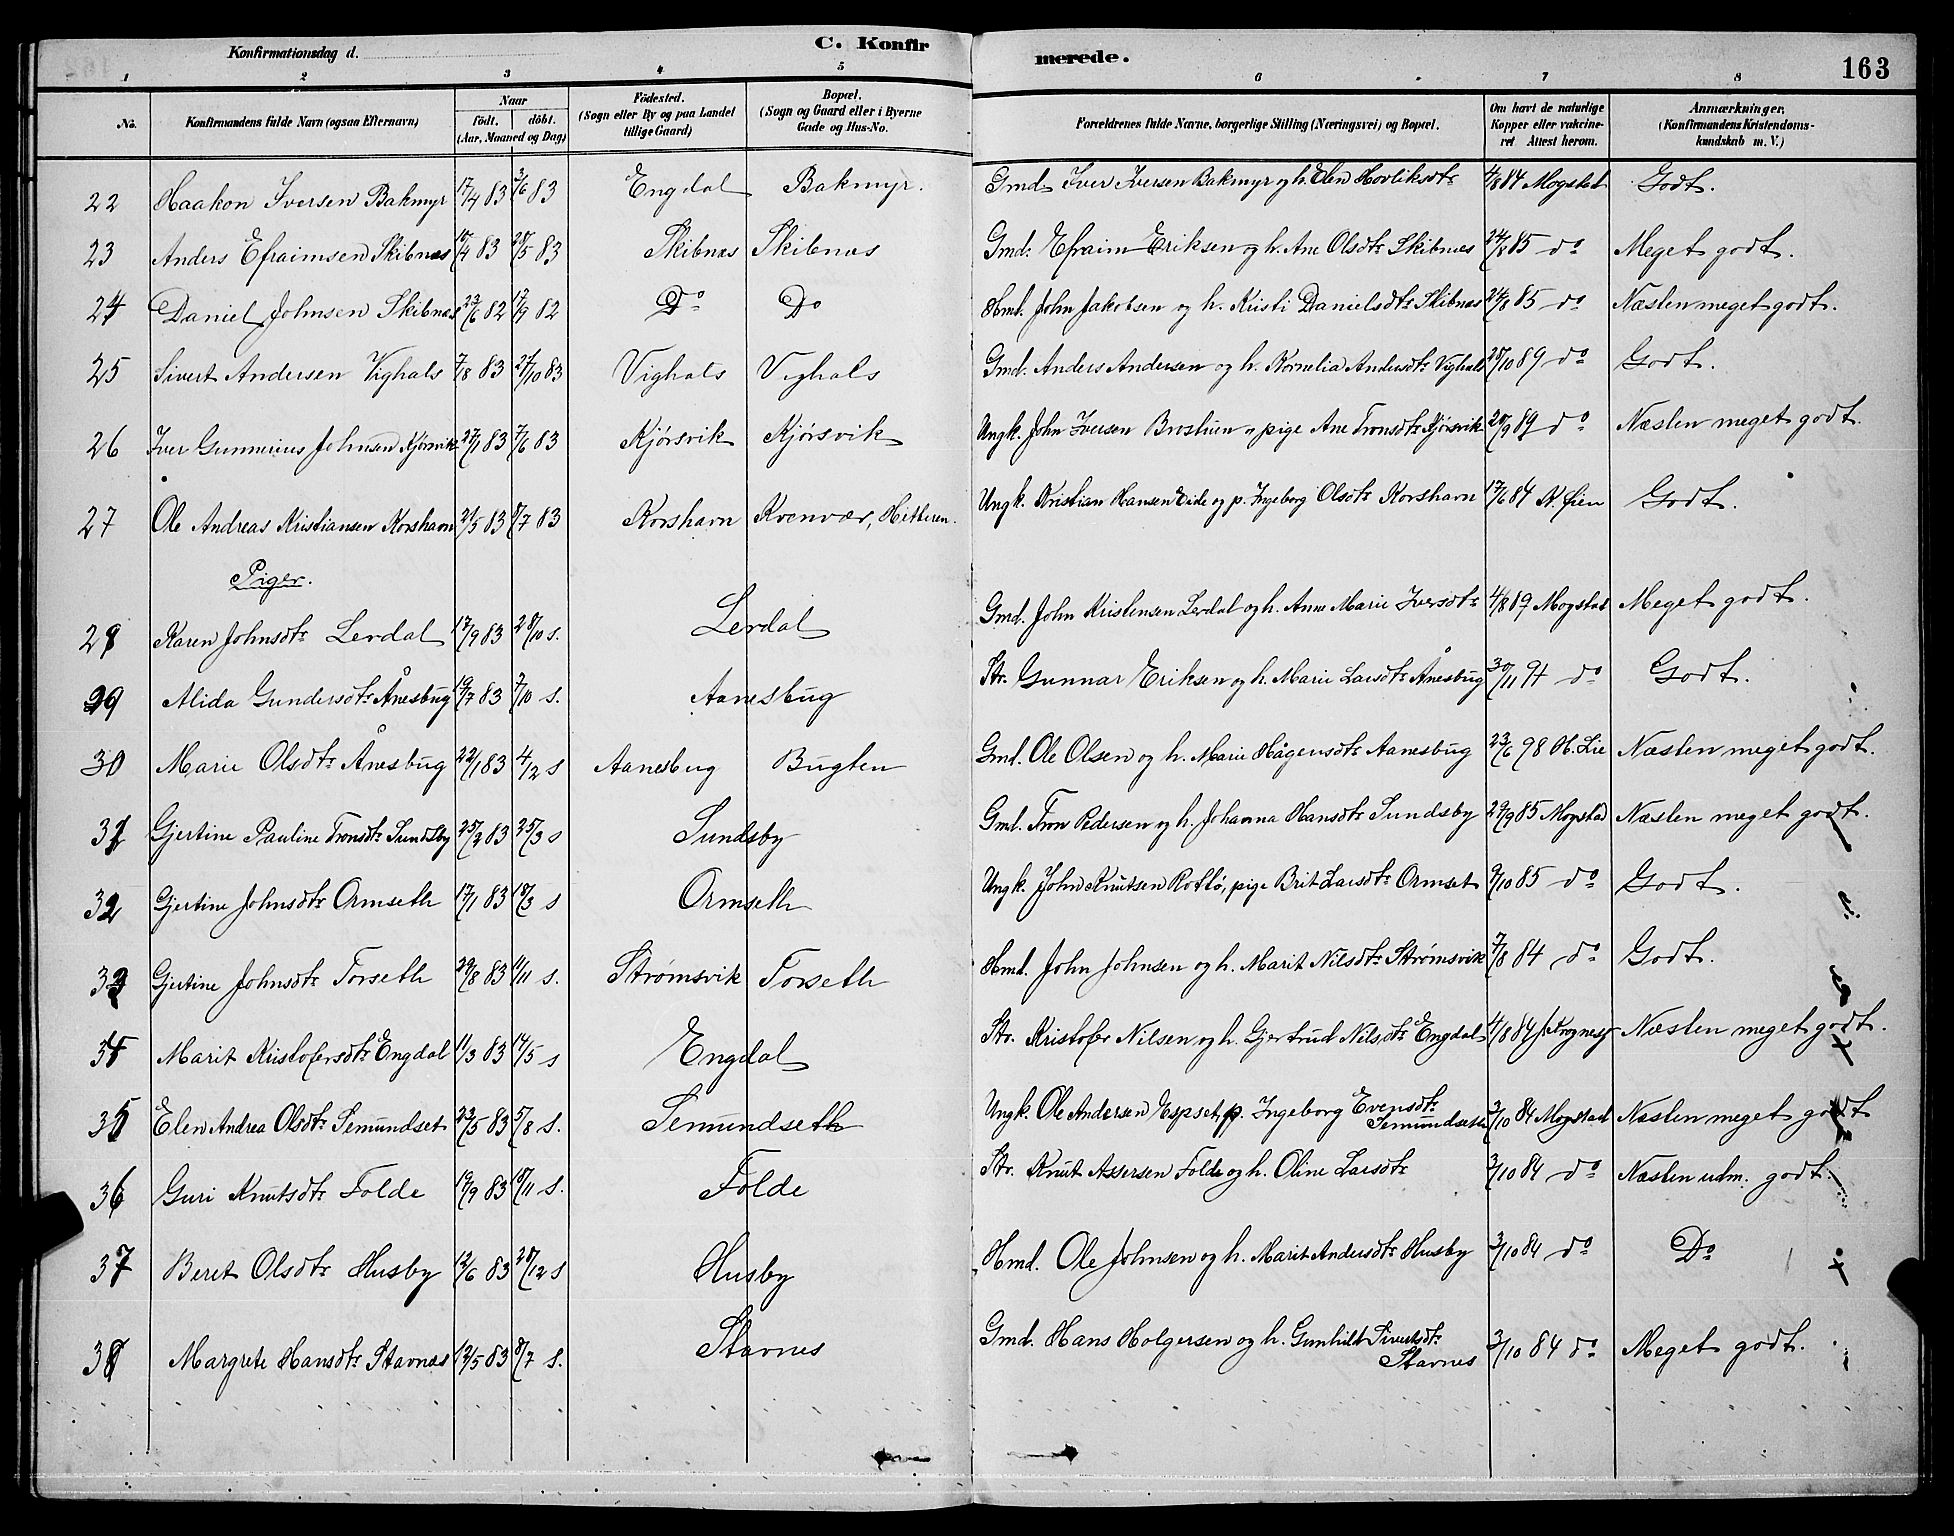 Konfirmationsdag d.
C. Konfirmerede.
163
1 2 3 4 5 6 7 8
No. Konfirmandens fulde Navn (ogsaa Efternavn) Naar født. døbt. (Aar, Maaned og Dag) Fødested. (Sogn eller By og paa Landet tillige Gaard) Bopæl. (Sogn og Gaard eller i Byerne Gade og Hus-No. Forældrenes fulde Navne, borgerlige Stilling (Næringsvei) og Bopæl. Om havt de naturlige Kopper eller vakcineret Attest herom. Anmærkninger, (Konfirmandens Kristendomskundskab m. V.)
22 Haakon Iversen Bakmyr 17/4 83 3/6 83 Engdal Bakmyr. Gmd. Iver Iversen Bakmyr og h. Elen Hovliksdtr 4/8 84 Mogstad Godt.
23 Anders Efraimsen Skibnæs 15/4 83 20/5 83 Skibnæs Skibnæs Gmd. Efraim Eriksen og h. Ane Olsdtr Skibnæs 24/8 85 do Meget godt.
24 Daniel Johnsen Skibnæs 23/6 82 17/9 82 Do Do Hmd. John Jakobsen og h. Kristi Danielsdtr Skibnæs 24/8 85 do Næsten meget godt.
25 Sivert Andersen Vighals 7/8 83 21/10 83 Vighals Vighals Gmd. Anders Andersen og h. Kornelia Andersdtr Vighals 28/10 89 do Godt.
26 Iver Gunnerius Johnsen Kjørsvik 27/1 83 7/6 83 Kjørsvik Kjørsvik Ungk. John Iversen pige Ane Tronsdtr Kjørsvik 20/9 89 do Næsten meget godt.
27 Ole Andreas Kristiansen Korshavn 21/5 83 8/7 83 Korshavn Kvenvær, Hitteren. Ungk. Kristian Hansen Eide og p. Ingeborg Olsdtr Korshavn 17/6 84 K. Øien Godt.
Piger.
28 Karen Johnsdtr Lerdal 17/9 83 28/10 s. Lerdal Gmd. John Kristensen Lerdal og h. Anne Marie Iversdtr 4/8 89 Mogstad Meget godt.
29 Alida Gundersdtr Ånesbug 19/7 83 7/10 s. Aanesbug Str. Gunnar Eriksen og h. Marie Larsdtr Ånesbug 30/11 91 do Godt.
30 Marie Olsdtr Ånesbug 22/1 83 4/2 s Aanesbug Bugten Gmd. Ole Olsen og h. Marie Hågensdtr Aanesbug 23/6 98 H. Lie Næsten meget godt.
31 Gjertine Pauline Tronsdtr Sundsby 25/2 83 25/3 s Sundsby Gmd. Tron Pedersen og h. Johanna Hansdtr Sundsby 29/9 85 Mogstad Næsten meget godt.
32 Gjertine Johnsdtr Ormseth 17/1 83 18/3 s Ormseth Ungk. John Knutsen Rottø, pige Brit Larsdtr Ormset 9/10 85 do Godt.
33 Gjertine Johnsdtr Forseth 29/8 83 11/11 s. Strømsvik Forseth Hmd. John Johnsen og h. Marit Nilsdtr Strømsvik 7/8 84 do Godt.
34 Marit Kristofersdtr Engdal 11/3 83 14/5 s Engdal Str. Kristofer Nilsen og h. Gjertrud Nilsdtr Engdal 4/8 84 Næsten meget godt.
35 Elen Andrea Olsdtr Semundset 23/5 83 5/8 s. Semundseth Ungk. Ole Andersen Espset, p. Ingeborg Evensdtr Semundseth 3/10 84 Mogstad Næsten meget godt
36 Guri Knutsdtr Folde 19/9 83 18/11 s. Folde Str. Knut Assersen Folde og h. Oline Larsdtr 3/10 84 do Næsten udm. godt.
37 Beret Olsdtr Husby 12/6 83 28/12 s Husby Hmd. Ole Johnsen og h. Marit Andersdtr Husby 3/10 84 do Do
38 Margrete Hansdtr Stavnæs 12/5 83 8/7 s. Stavnes Gmd. Hans Holgersen og h. Gunhild Sivertsdtr Stavnes 3/10 84 do Meget godt.